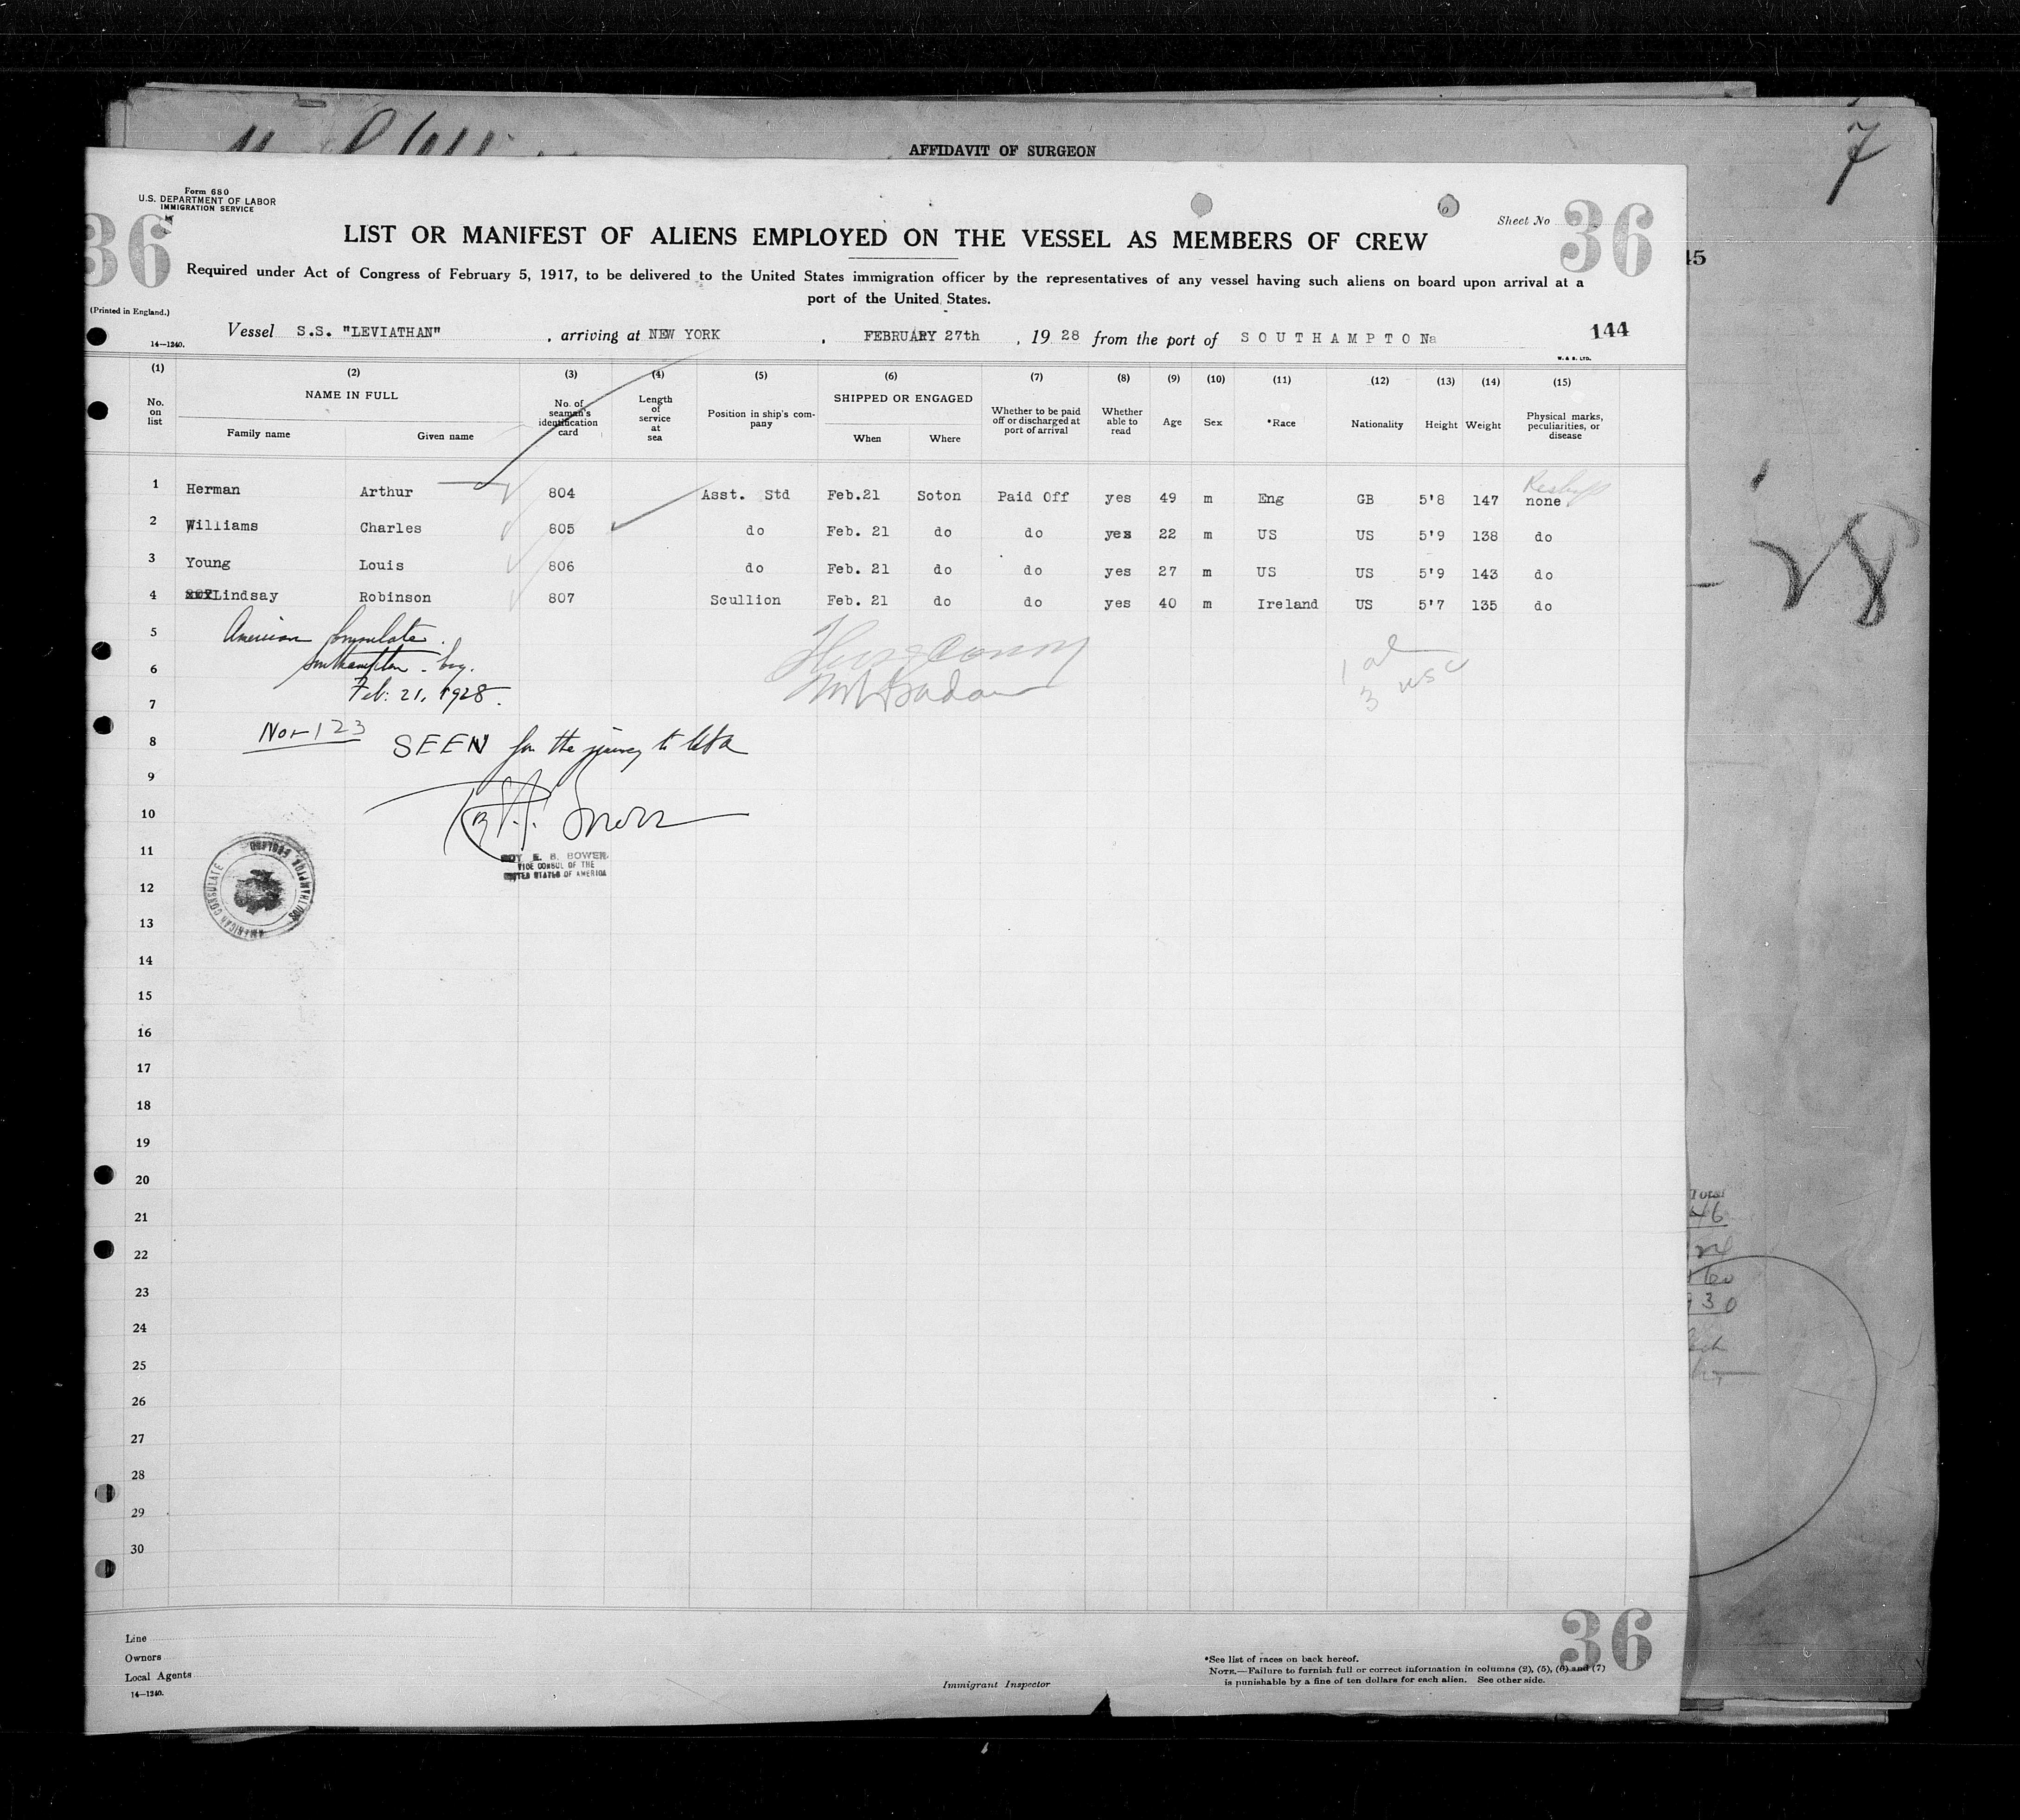 AFFIDAVIT OF SURGEON
7
Form 680
U.S. DEPARTMENT OF LABOR
IMMIGRATION SERVICE
36
Sheet No
36
LIST OR MANIFEST OF ALIENS EMPLOYED ON THE VESSEL AS MEMBERS OF CREW
Required under Act of Congress of February 5, 1917, to be delivered to the United States immigration officer by the representatives of any vessel having such aliens on board upon arrival at a
port of the United States.
(Printed in England.)
14—1240.
Vessel S.S. "LEVIATHAN" , arriving at NEW YORK , FEBRUARY 27th , 19 28 from the port of S O U T H A M P T O Na
144
W. & S. LTD.
15
(1) (2) (3) (4) (5) (6) (7) (8) (9) (10) (11) (12) (13) (14) (15)
No. on list NAME IN FULL Family name Given name No. of seaman's identification card Length of service at sea Position in ship's company SHIPPED OR ENGAGED When Where Whether to be paid off or discharged at port of arrival Whether able to read Age Sex *Race Nationality Height Weight Physical marks, peculiarities, or disease
1 Herman Arthur 804 Asst. Std Feb.21 Soton Paid Off yes 49 m Eng GB 5'8 147 none
2 Williams Charles 805 do Feb. 21 do do yes 22 m US US 5'9 138 do
3 Young Louis 806 do Feb. 21 do do yes 27 m US US 5'9 143 do
4 Lindsay Robinson 807 Scullion Feb. 21 do do yes 40 m Ireland US 5'7 135 do
28
5 American Consulate.
6 Southampton - Eng.
7 Feb: 21, 1928.
1 al
3 usc
No 123
8 SEEN for the journey to USA
9
10
ROY E. B. BOWER
VICE CONSUL OF THE
UNITED STATES OF AMERICA
AMERICAN CONSULATE SOUTHAMPTON ENGLAND
11
12
13
14
15
16
17
18
19
20
21
22
23
24
25
26
27
28
29
30
Total
46
930
Line
Owners
Local Agents
14—1240.
Immigrant Inspector
*See list of races on back hereof.
NOTE.—Failure to furnish full or correct information in columns (2), (5), (6) and (7)
is punishable by a fine of ten dollars for each alien. See other side.
36